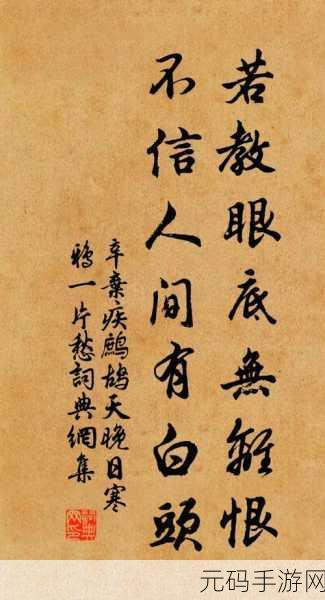 若教眼底無離恨
不信人間有白頭
辛棄疾鷓鴣天晚日寒
鴉一片愁詞典網集
元码手游网